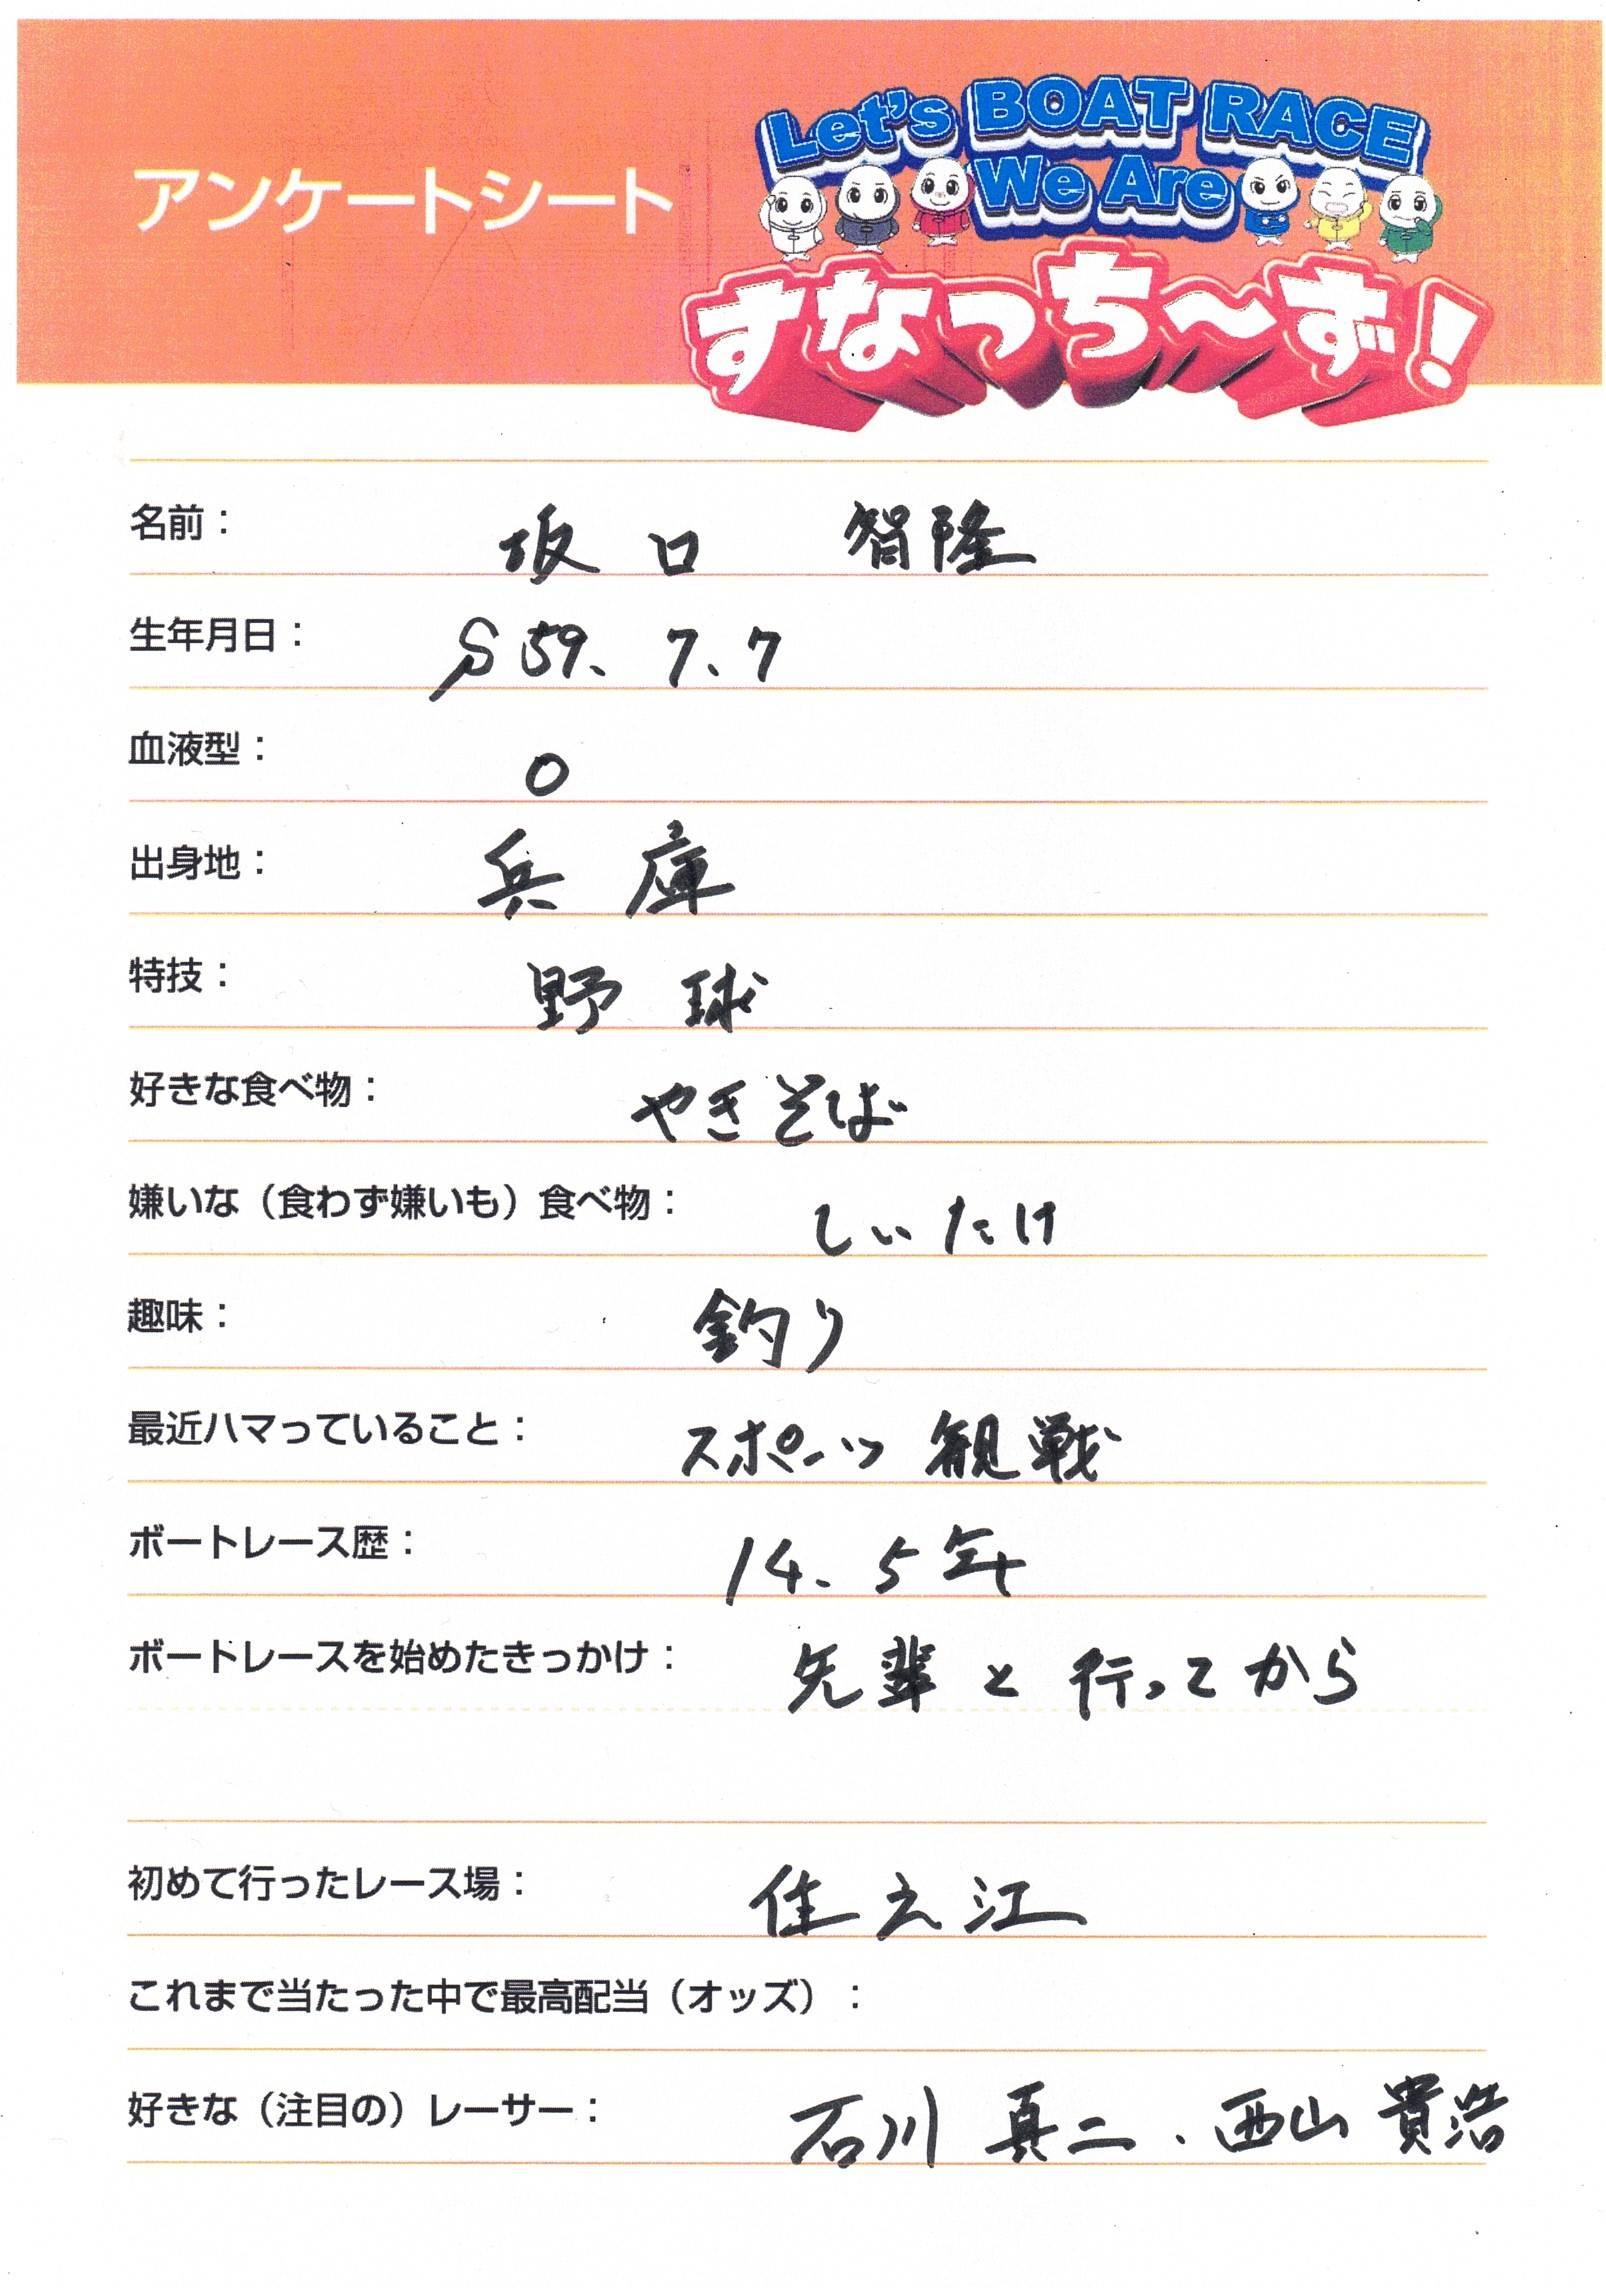 アンケートシート
Let's BOAT RACE
We Are
すなっち〜ず！
名前： 坂口 智隆
生年月日： S59. 7. 7
血液型： O
出身地： 兵庫
特技： 野球
好きな食べ物： やきそば
嫌いな（食わず嫌いも）食べ物： しいたけ
趣味： 釣り
最近ハマっていること： スポーツ観戦
ボートレース歴： 14、5年
ボートレースを始めたきっかけ： 先輩と行ってから
初めて行ったレース場： 住之江
これまで当たった中で最高配当（オッズ）：
好きな（注目の）レーサー： 石川真二、西山貴浩